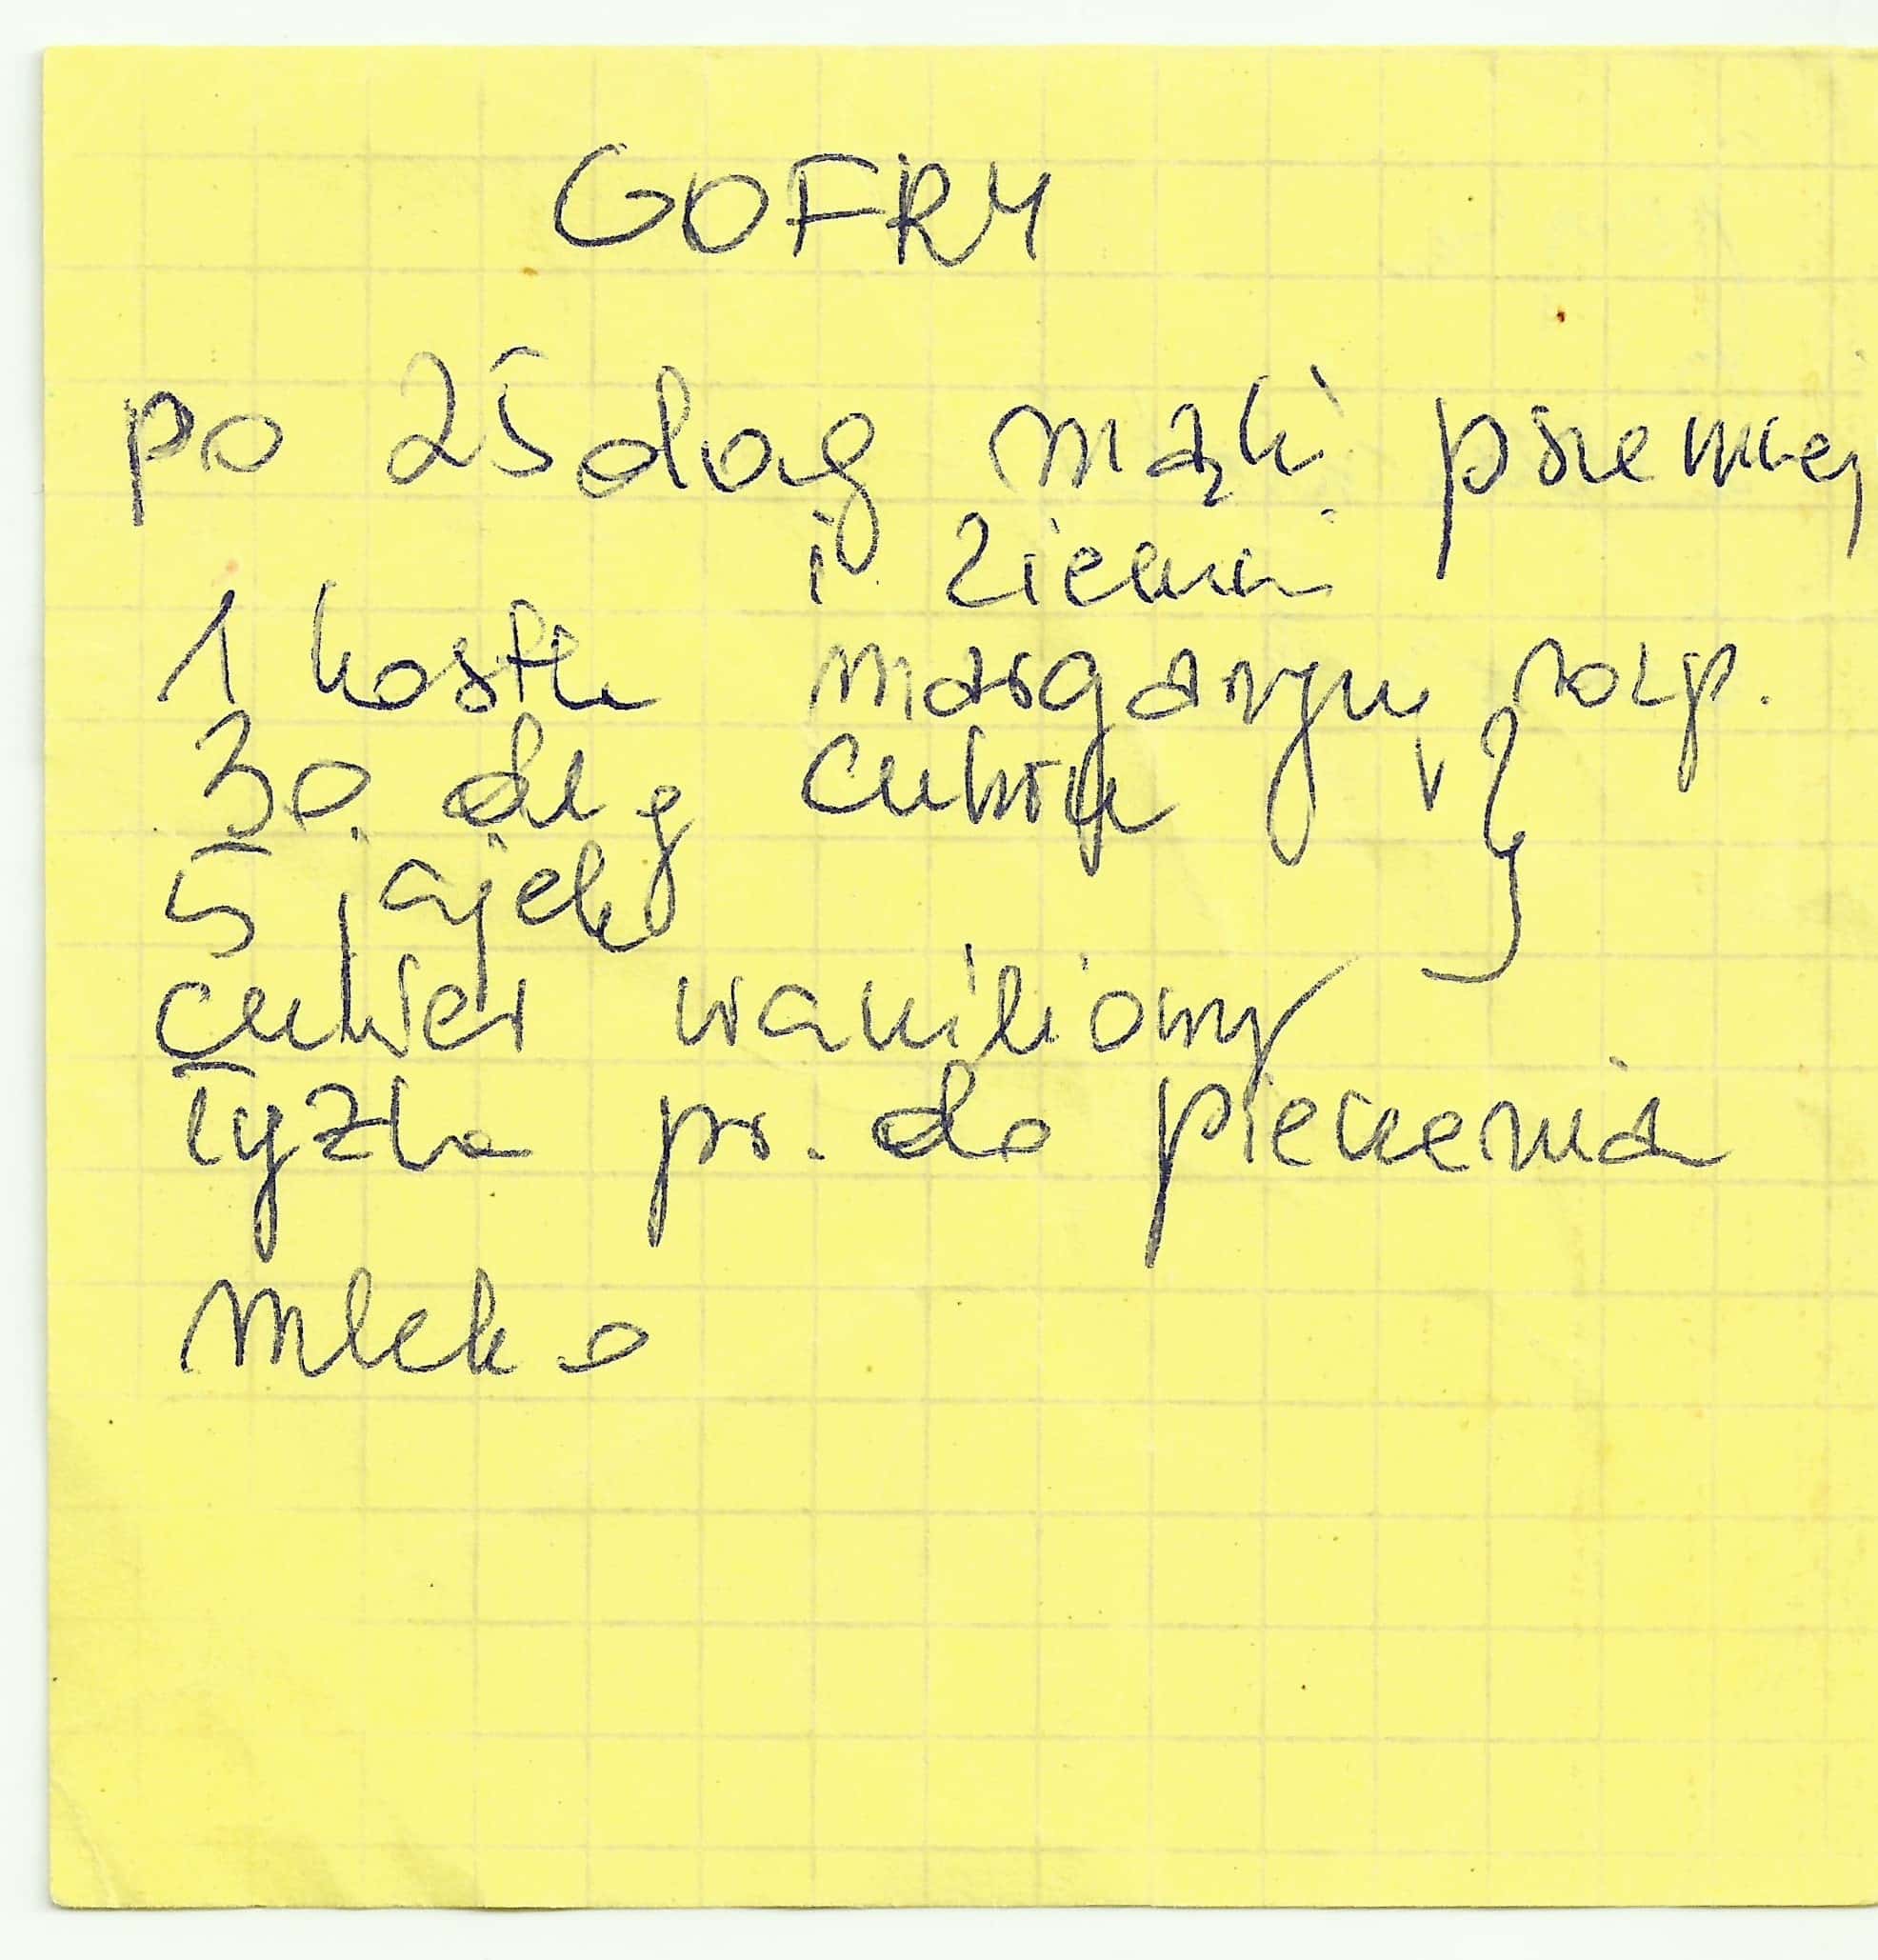 GOFRY
po 25 dag mąki pszennej
i ziemn
1 kostka margaryny rozp.
30 dag cukru
5 jajek
cukier waniliowy
łyżka pr. do pieczenia
mleko